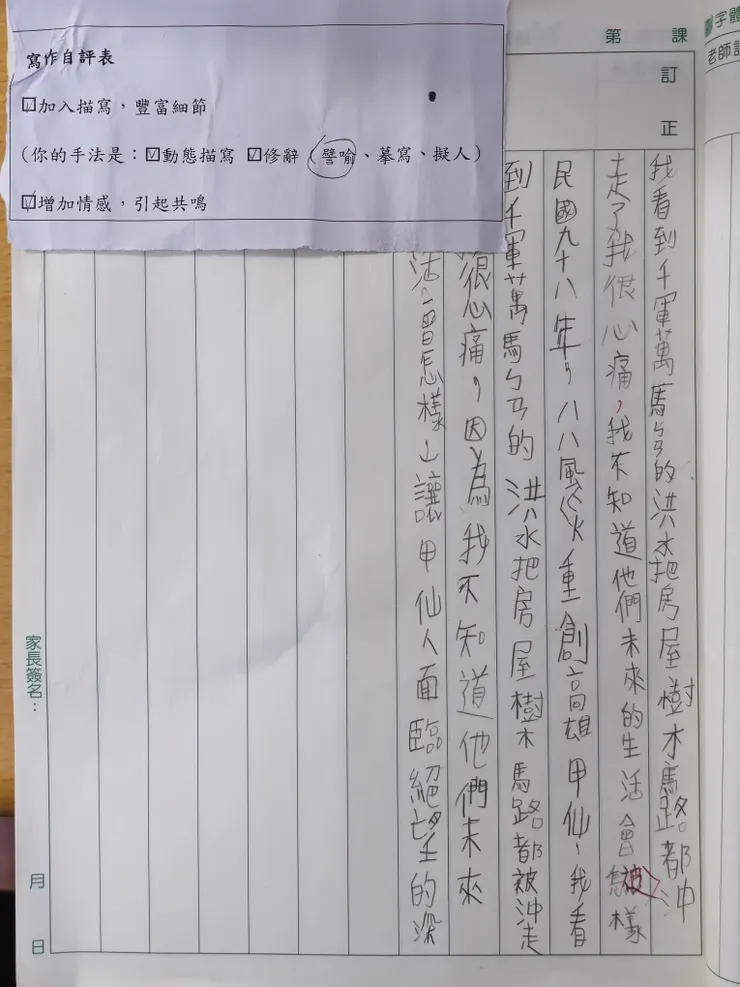 寫作自評表
☑加入描寫，豐富細節
(你的手法是：☑動態描寫 ☑修辭（譬喻、摹寫、擬人）
☑增加情感，引起共鳴
第 課
訂正
我看到千軍萬馬ㄅㄢ的洪水把房屋樹木馬路都沖
走了我很心痛，我不知道他們未來的生活會怎樣
被
民國九十八年，八八風災重創高雄甲仙、我看
到千軍萬馬ㄅㄢ的洪水把房屋樹木馬路都被沖走
很心痛，因為我不知道他們未來
活會怎樣，讓甲仙人面臨絕望的深
家長簽名：
月 日
字體
老師